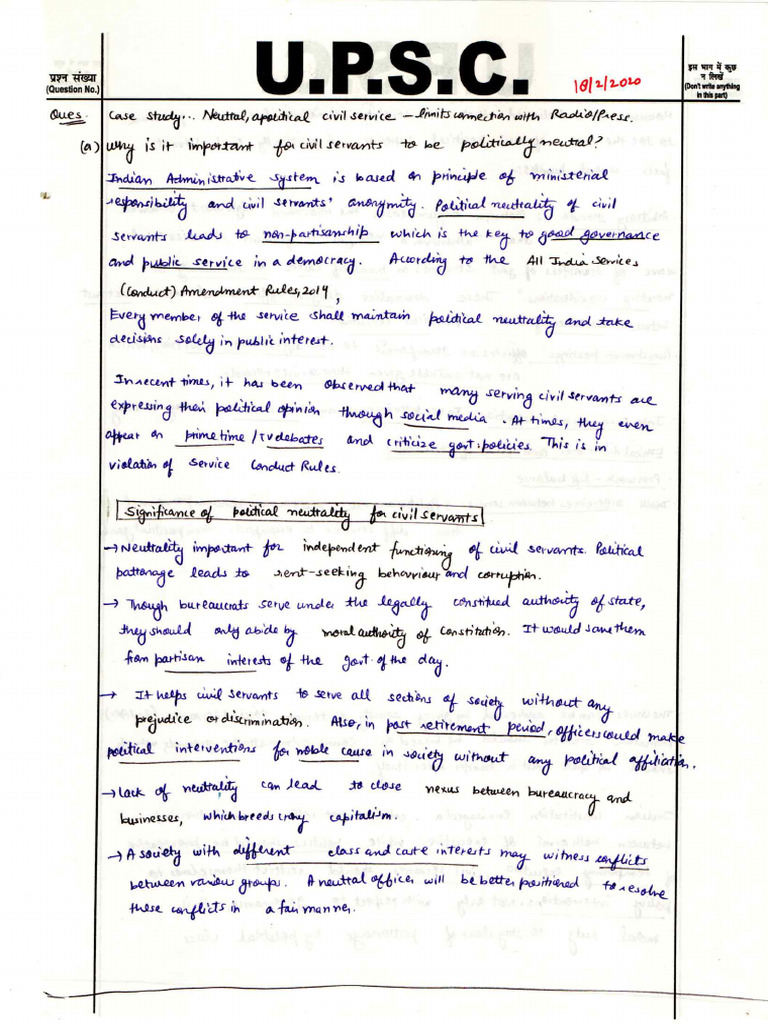 U.P.S.C.
18/2/2020
प्रश्न संख्या
(Question No.)
इस भाग में कुछ
न लिखें
(Don't write anything
in this part)
Ques. Case study... Neutral, apolitical civil service – limits connection with Radio/Press.
(a) Why is it important for civil servants to be politically neutral?
Indian Administrative system is based on principle of ministerial
responsibility and civil servants' anonymity. Political neutrality of civil
servants leads to non-partisanship which is the key to good governance
and public service in a democracy. According to the All India Services
(Conduct) Amendment Rules, 2014,
Every member of the service shall maintain political neutrality and take
decisions solely in public interest.
In recent times, it has been observed that many serving civil servants are
expressing their political opinion through social media. At times, they even
appear on prime time / TV debates and criticize govt: policies. This is in
violation of Service Conduct Rules.
Significance of political neutrality for civil servants
→ Neutrality important for independent functioning of civil servants. Political
pattonage leads to rent-seeking behaviour and corruption.
→ Though bureaucrats serve under the legally constitued authority of state,
they should only abide by moral authority of Constitution. It would save them
from partisan interests of the govt. of the day.
→ It helps civil servants to serve all sections of society without any
prejudice or discrimination. Also, in post retirement period, officers could make
political interventions for noble cause in society without any political affiliation.
→ Lack of neutrality can lead to close nexus between bureaucracy and
businesses, which breeds crony capitalism.
→ A society with different class and caste interests may witness conflicts
between various groups. A neutral officer will be better positioned to resolve
these conflicts in a fair manner.